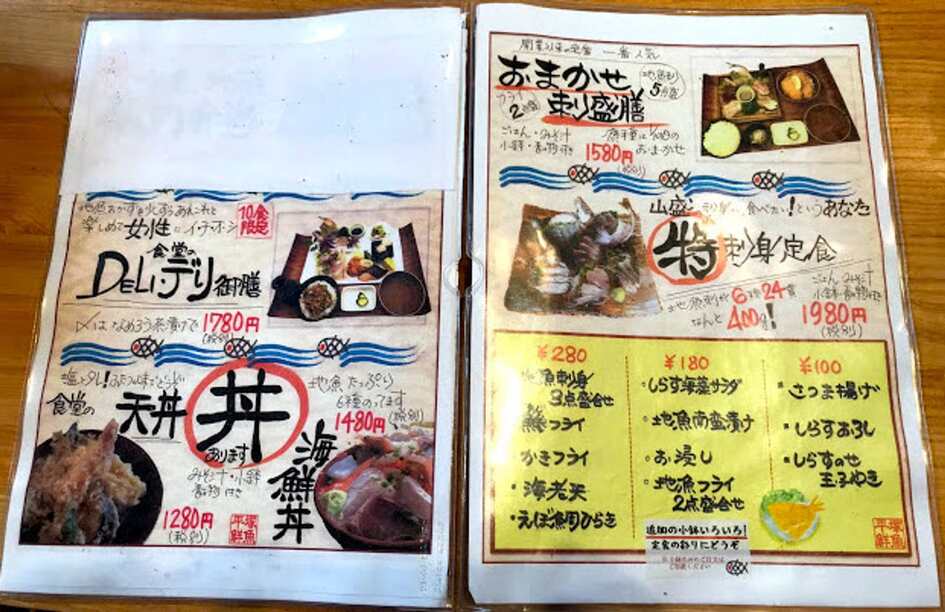 楽しめて女性にイチオシ
10食限定
食堂の
DELI・デリ御膳
〆はなめろう茶漬けで 1780円
(税別)
食堂の
天丼
丼
あります
みそ汁・小鉢
香物付き
1280円
(税別)
地魚たっぷり
6種のってます
1480円
(税別)
海鮮丼
開業以来の定番 一番人気
おまかせ
刺り盛膳
フライ
2
ごはん・みそ汁
小鉢・香物付き
1580円
(税別)
おまかせ
山盛
食べたい!というあなた
特刺身定食
地魚刺が6種24貫
なんと400g!
ごはん みそ汁
1980円
(税別)
¥280
地魚刺身
3点盛合せ
鯵フライ
かきフライ
海老天
えぼ鯛開ひらき
¥180
しらす海藻サラダ
地魚南蛮漬け
お浸し
地魚フライ
2点盛合せ
¥100
さつま揚げ
しらすおろし
しらすのせ
玉子やき
追加の小鉢いろいろ!
定食の彩りにどうぞ